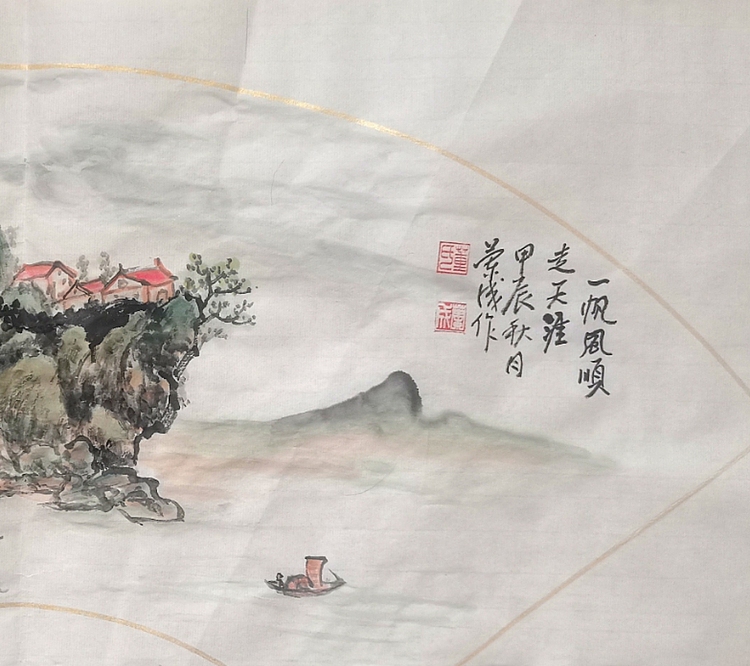 一帆風順
走天涯
甲辰秋月
荣成作